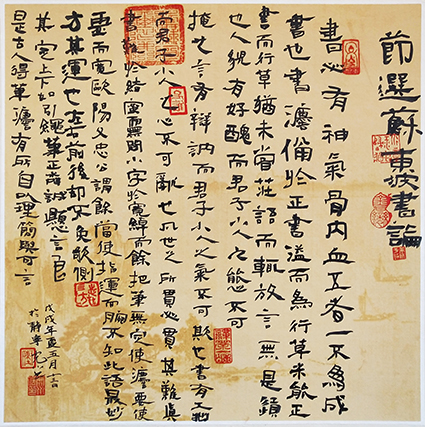 節選蘇東坡書論
書必有神氣骨肉血五者一不為成
書也書灋備於正書溢而為行草未能正
書而行草猶未嘗莊語而輒放言無是
也人貌有好醜而君子小人之態不可
掩也言有辯訥而君子小人之氣不可欺也書有工拙
而君子小人之心不可亂也凡世之所貴必貴其難真
書難於結密無間小字於寬綽而餘把筆無定使灋要使
虛而寬歐陽文忠公謂餘當使指運而腕不知此語最妙
方其運也左右前後却不免欹側
其定上下如引繩筆正者誠懸言良
是古人得筆灋有成自理簡與可言
戊戌年夏五月十
於静寧